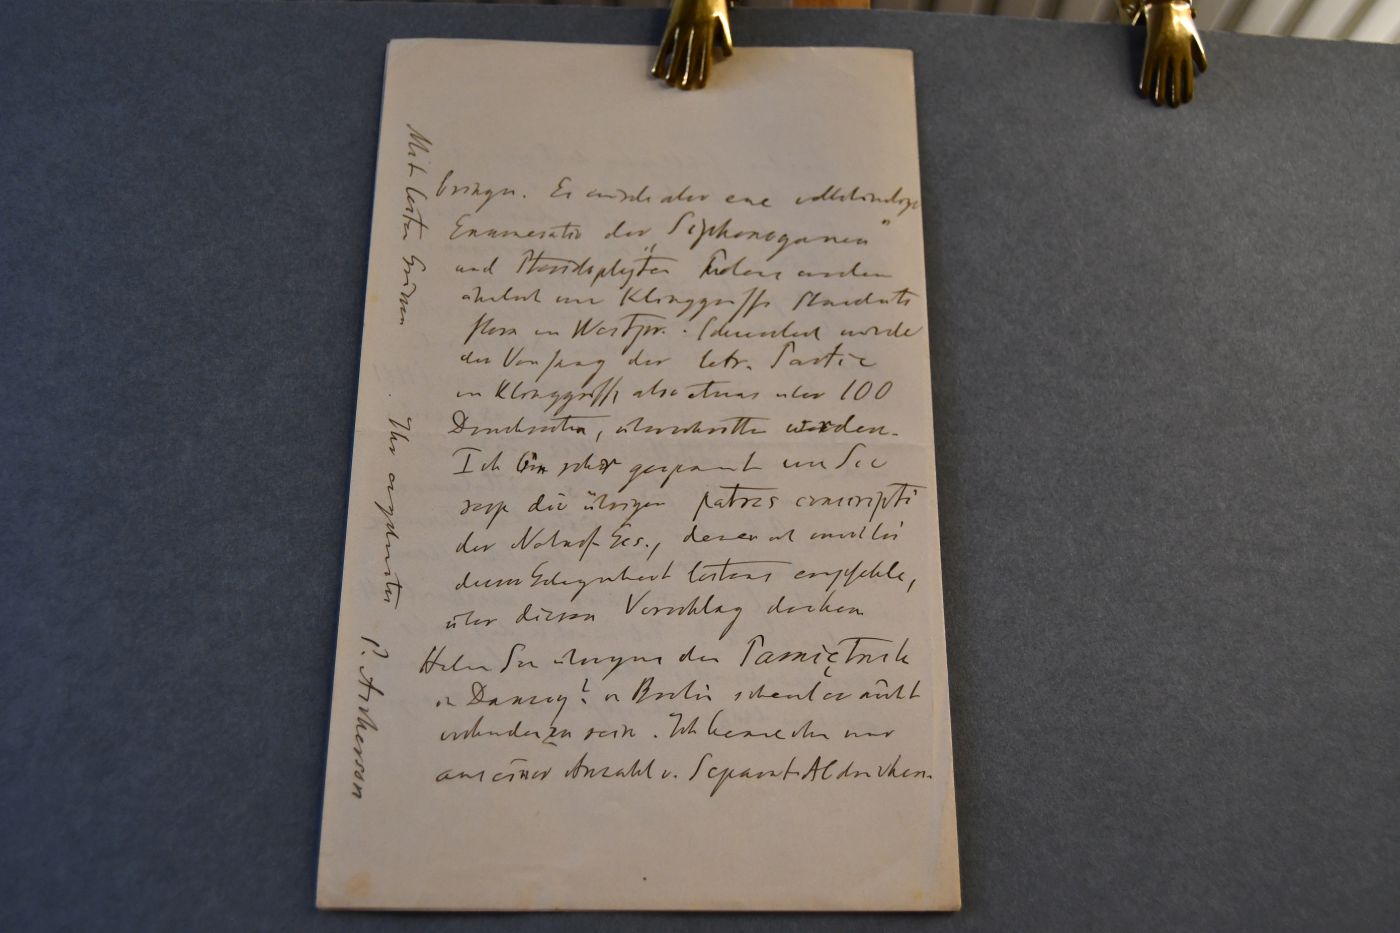 bringen. Es würde aber eine vollständige
Enumeratio der „Siphonogamen“
und Pteridophyten Polens werden
ähnlich wie Klinggräffs Standorts
flora in Westpr. Schwerlich würde
der Umfang der betr. Partie
in Klinggräff, also etwas über 100
Druckseiten, überschritten werden.
Ich bin sehr gespannt wie Sie
resp. die übrigen patres conscripti
der Naturf. Ges., denen ich mich bei
dieser Gelegenheit bestens empfehle,
über diesen Vorschlag denken
Haben Sie übrigens den Pamiętnik
in Danzig? in Berlin scheint er nicht
vorhanden zu sein. Ich kenne ihn nur
aus einer Anzahl v. Separat-Abdrücken.
Mit besten Grüssen
Ihr ergebenster
P. Ascherson